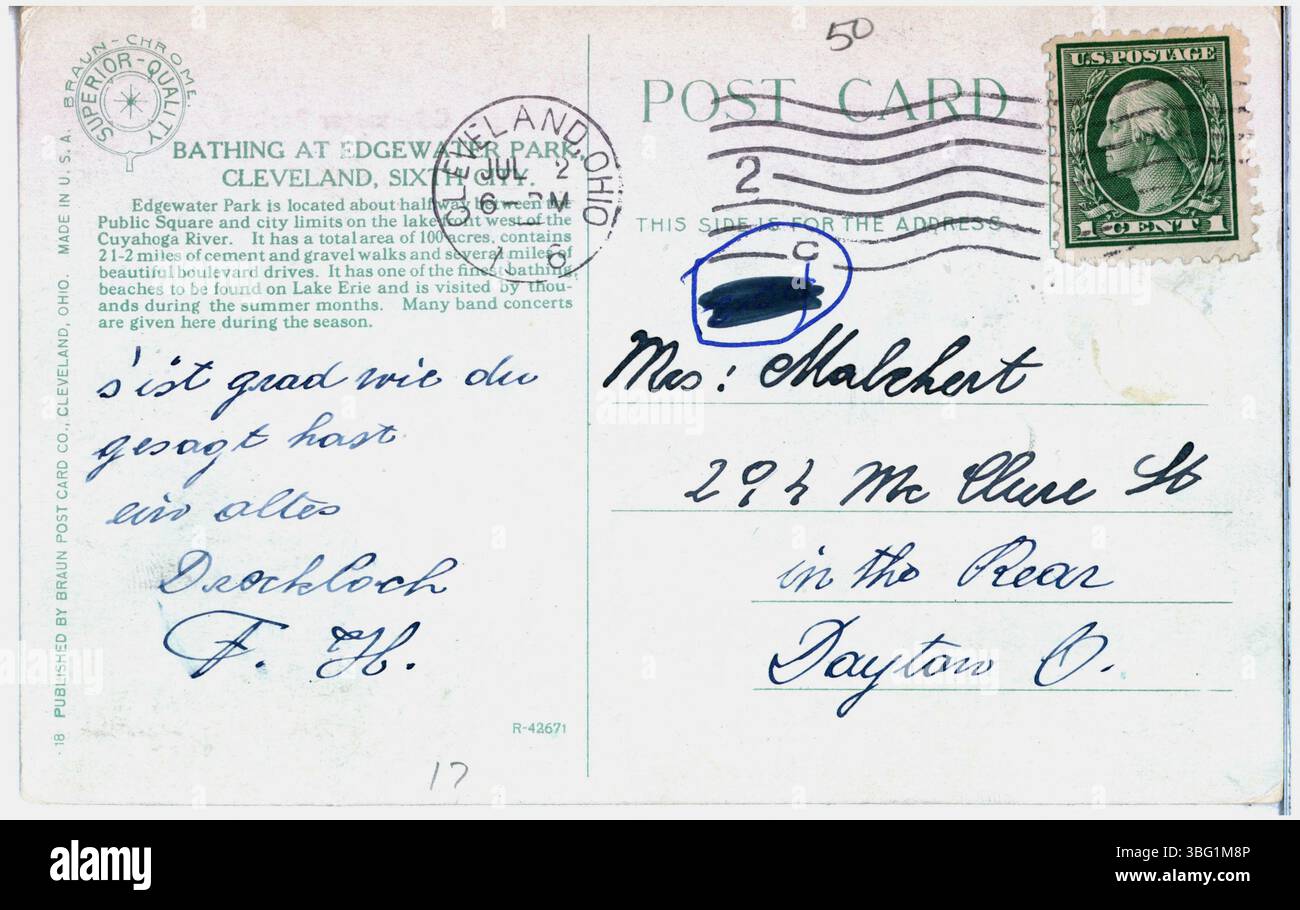 50
BRAUN-CHROME.
SUPERIOR-QUALITY
MADE IN U. S. A.
POST CARD
U.S. POSTAGE
1 CENT 1
CLEVELAND, OHIO
JUL 2
6 - PM
2
C
BATHING AT EDGEWATER PARK,
CLEVELAND, SIXTH CITY.
Edgewater Park is located about half way between the
Public Square and city limits on the lake front west of the
Cuyahoga River. It has a total area of 100 acres, contains
2 1-2 miles of cement and gravel walks and several miles of
beautiful boulevard drives. It has one of the finest bathing
beaches to be found on Lake Erie and is visited by thou-
ands during the summer months. Many band concerts
are given here during the season.
THIS SIDE IS FOR THE ADDRESS
s'ist grad wie du
gesagt hast
ein altes
Drockloch
F. H.
Mrs: Malchert
292 Mc Clure St
in the Rear
Dayton O.
18 PUBLISHED BY BRAUN POST CARD CO., CLEVELAND, OHIO.
R-42671
17
alamy
Image ID: 3BG1M8P
www.alamy.com